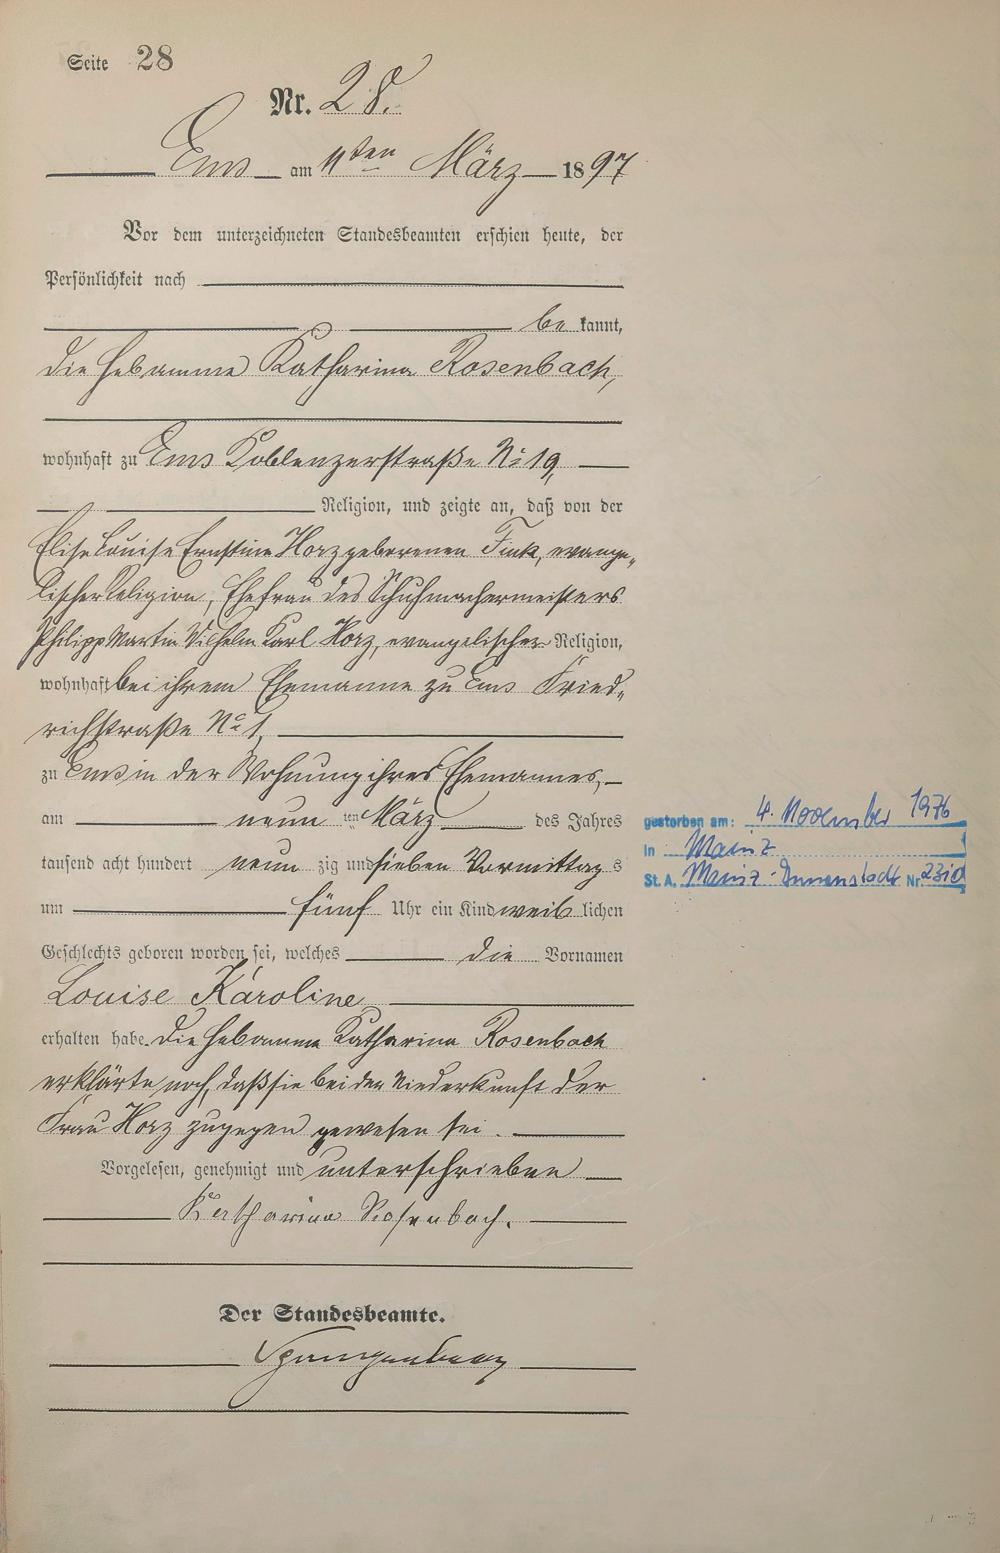 Seite 28
Nr. 28.
Ems am 11ten März 1897
Vor dem unterzeichneten Standesbeamten erschien heute, der
Persönlichkeit nach
be kannt,
die Hebamme Katharina Rosenbach,
wohnhaft zu Ems Koblenzerstraße No 19,
Religion, und zeigte an, daß von der
Elise Louise Ernstine Horz geborenen Fink, evange„
lischer Religion, Ehefrau des Schuhmachermeisters
Philipp Martin Wilhelm Karl Horz, evangelischer Religion,
wohnhaft bei ihrem Ehemanne zu Ems Fried„
richstraße No 1,
zu Ems in der Wohnung ihres Ehemannes,
am neun ten März des Jahres
tausend acht hundert neun zig und sieben Vormittag s
um fünf Uhr ein Kind weib lichen
Geschlechts geboren worden sei, welches die Vornamen
Louise Karoline
erhalten habe. Die Hebamme Katharina Rosenbach
erklärte noch, daß sie bei der Niederkunft der
Frau Horz zugegen gewesen sei.
Vorgelesen, genehmigt und unterschrieben
Katharina Rosenbach.
Der Standesbeamte.
Spangenberg
gestorben am: 4. November 1976
in Mainz
St. A. Mainz-Innenstadt Nr.